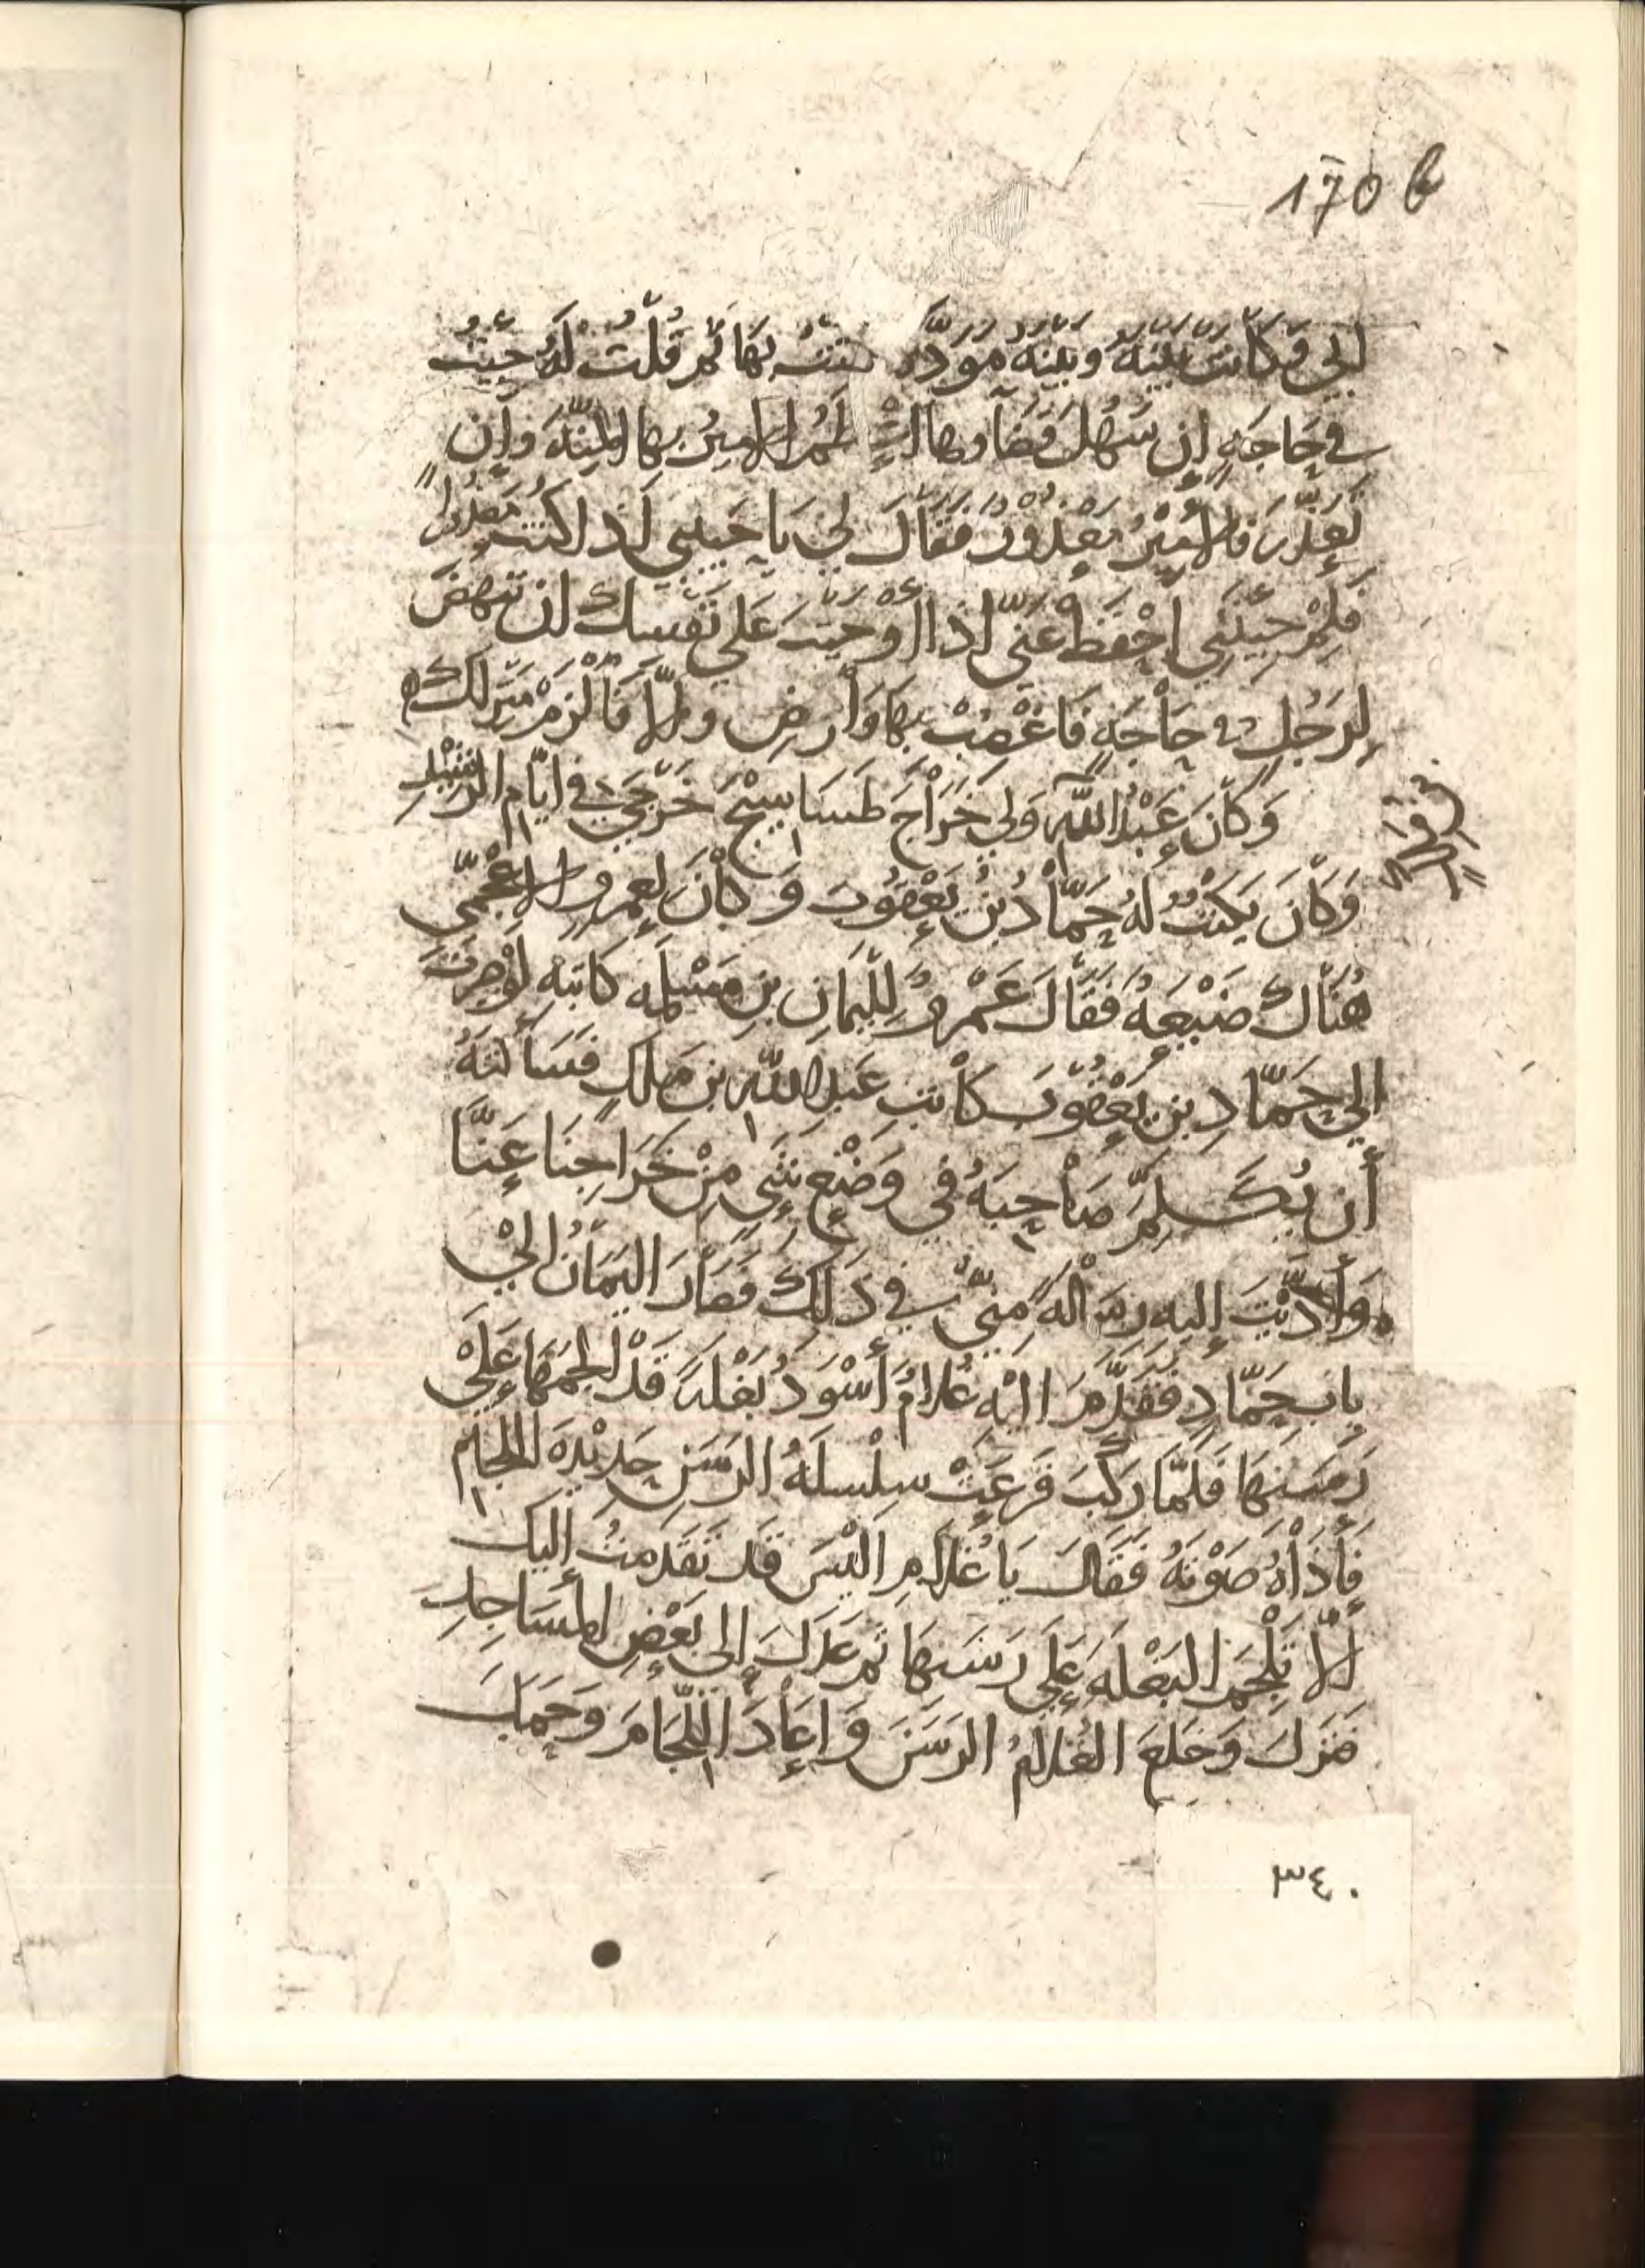 170 b
الي وَكَانَتْ بَيْنَهُ وبَيْنَهُ مَوَدَّه بهَا ثم قُلْتُ لَهُ جِيتُ
في حَاجَهٍ إن سَهُلَ قَضَآوها الأمير بها المِنَّه وَإن
تَعَذَّرَ فالأمِيْرُ مَعْذُوْرٌ فَقَالَ لي يَا حَبِيبي لَذا كنت مَعْذُوراً
فَلِمْ جِيْتَنِي احْفَظْ عَنّي اذَا أوْجَبْتَ عَلى نَفْسِكَ ان تَنهَضَ
لِرَجُلٍ في حَاْجَهٍ فَاغْضَبْ بِهَا وَأرضِ وإلاّ فَالْزَمْ مَنزِلَكَ
وَكَانَ عَبْدُ اللَّه وَلِيَ خَرَاْجَ طَسَاسِيْجَ خَرجَي في ايّام الرَشِيْدِ
وَكَانَ يَكتُبُ لَهُ حَمَّاْدُ بْنُ يَعْقُوْبَ وَكَانَ لِعَمرو الاعْجَمّي
هُنَاكَ ضَيْعَهُ فَقَالَ عَمْروٌ لِليَمَانِ بنِ مَسْلمه كَاتِبِهِ لَوْ صِرْتَ
الي حَمَّادِ بنِ يَعْقُوْبَ كَاْتِبِ عَبدِ اللَّه بنِ مَلكٍ فَسَألتَهُ
أَن يُكَلِّمَ صَاْحِبَهُ في وَضْعِ شَيءٍ مِنْ خَرَاجِنَا عَنَّا
وَأَدَّيْتَ إليه رِسَالَهً مِنيّ في ذَلِكَ فَصَارَ اليَمَانُ اليْ
باب حَمَّادٍ فَقَدَّمَ اليْهِ غُلامٌ أَسْوَدُ بَغْلَهً قَدْ الجَمَهَا عَلَىْ
رَسَنِهَا فَلَمَّا رَكِبَ قَرَعَتْ سِلْسلَهُ الرَسَنِ حَدِيْدَه اللجام
فَأَذَاْهُ صَوْتهُ فَقَالَ يَا غُلاَمِ الَيْسَ قَد تَقَدمتُ إليكَ
ألاّ تُلْجِمَ البَغْلَهَ عَلَي رَسَنِهَا ثم عَدَلَ إلي بَعْضِ المَسَاجِدِ
فنَزَلَ وَخَلَعَ الغُلاَمُ الرَسَنَ وَاعَاْدَ اللّجَامَ وَحَمّاد
٣٤٠